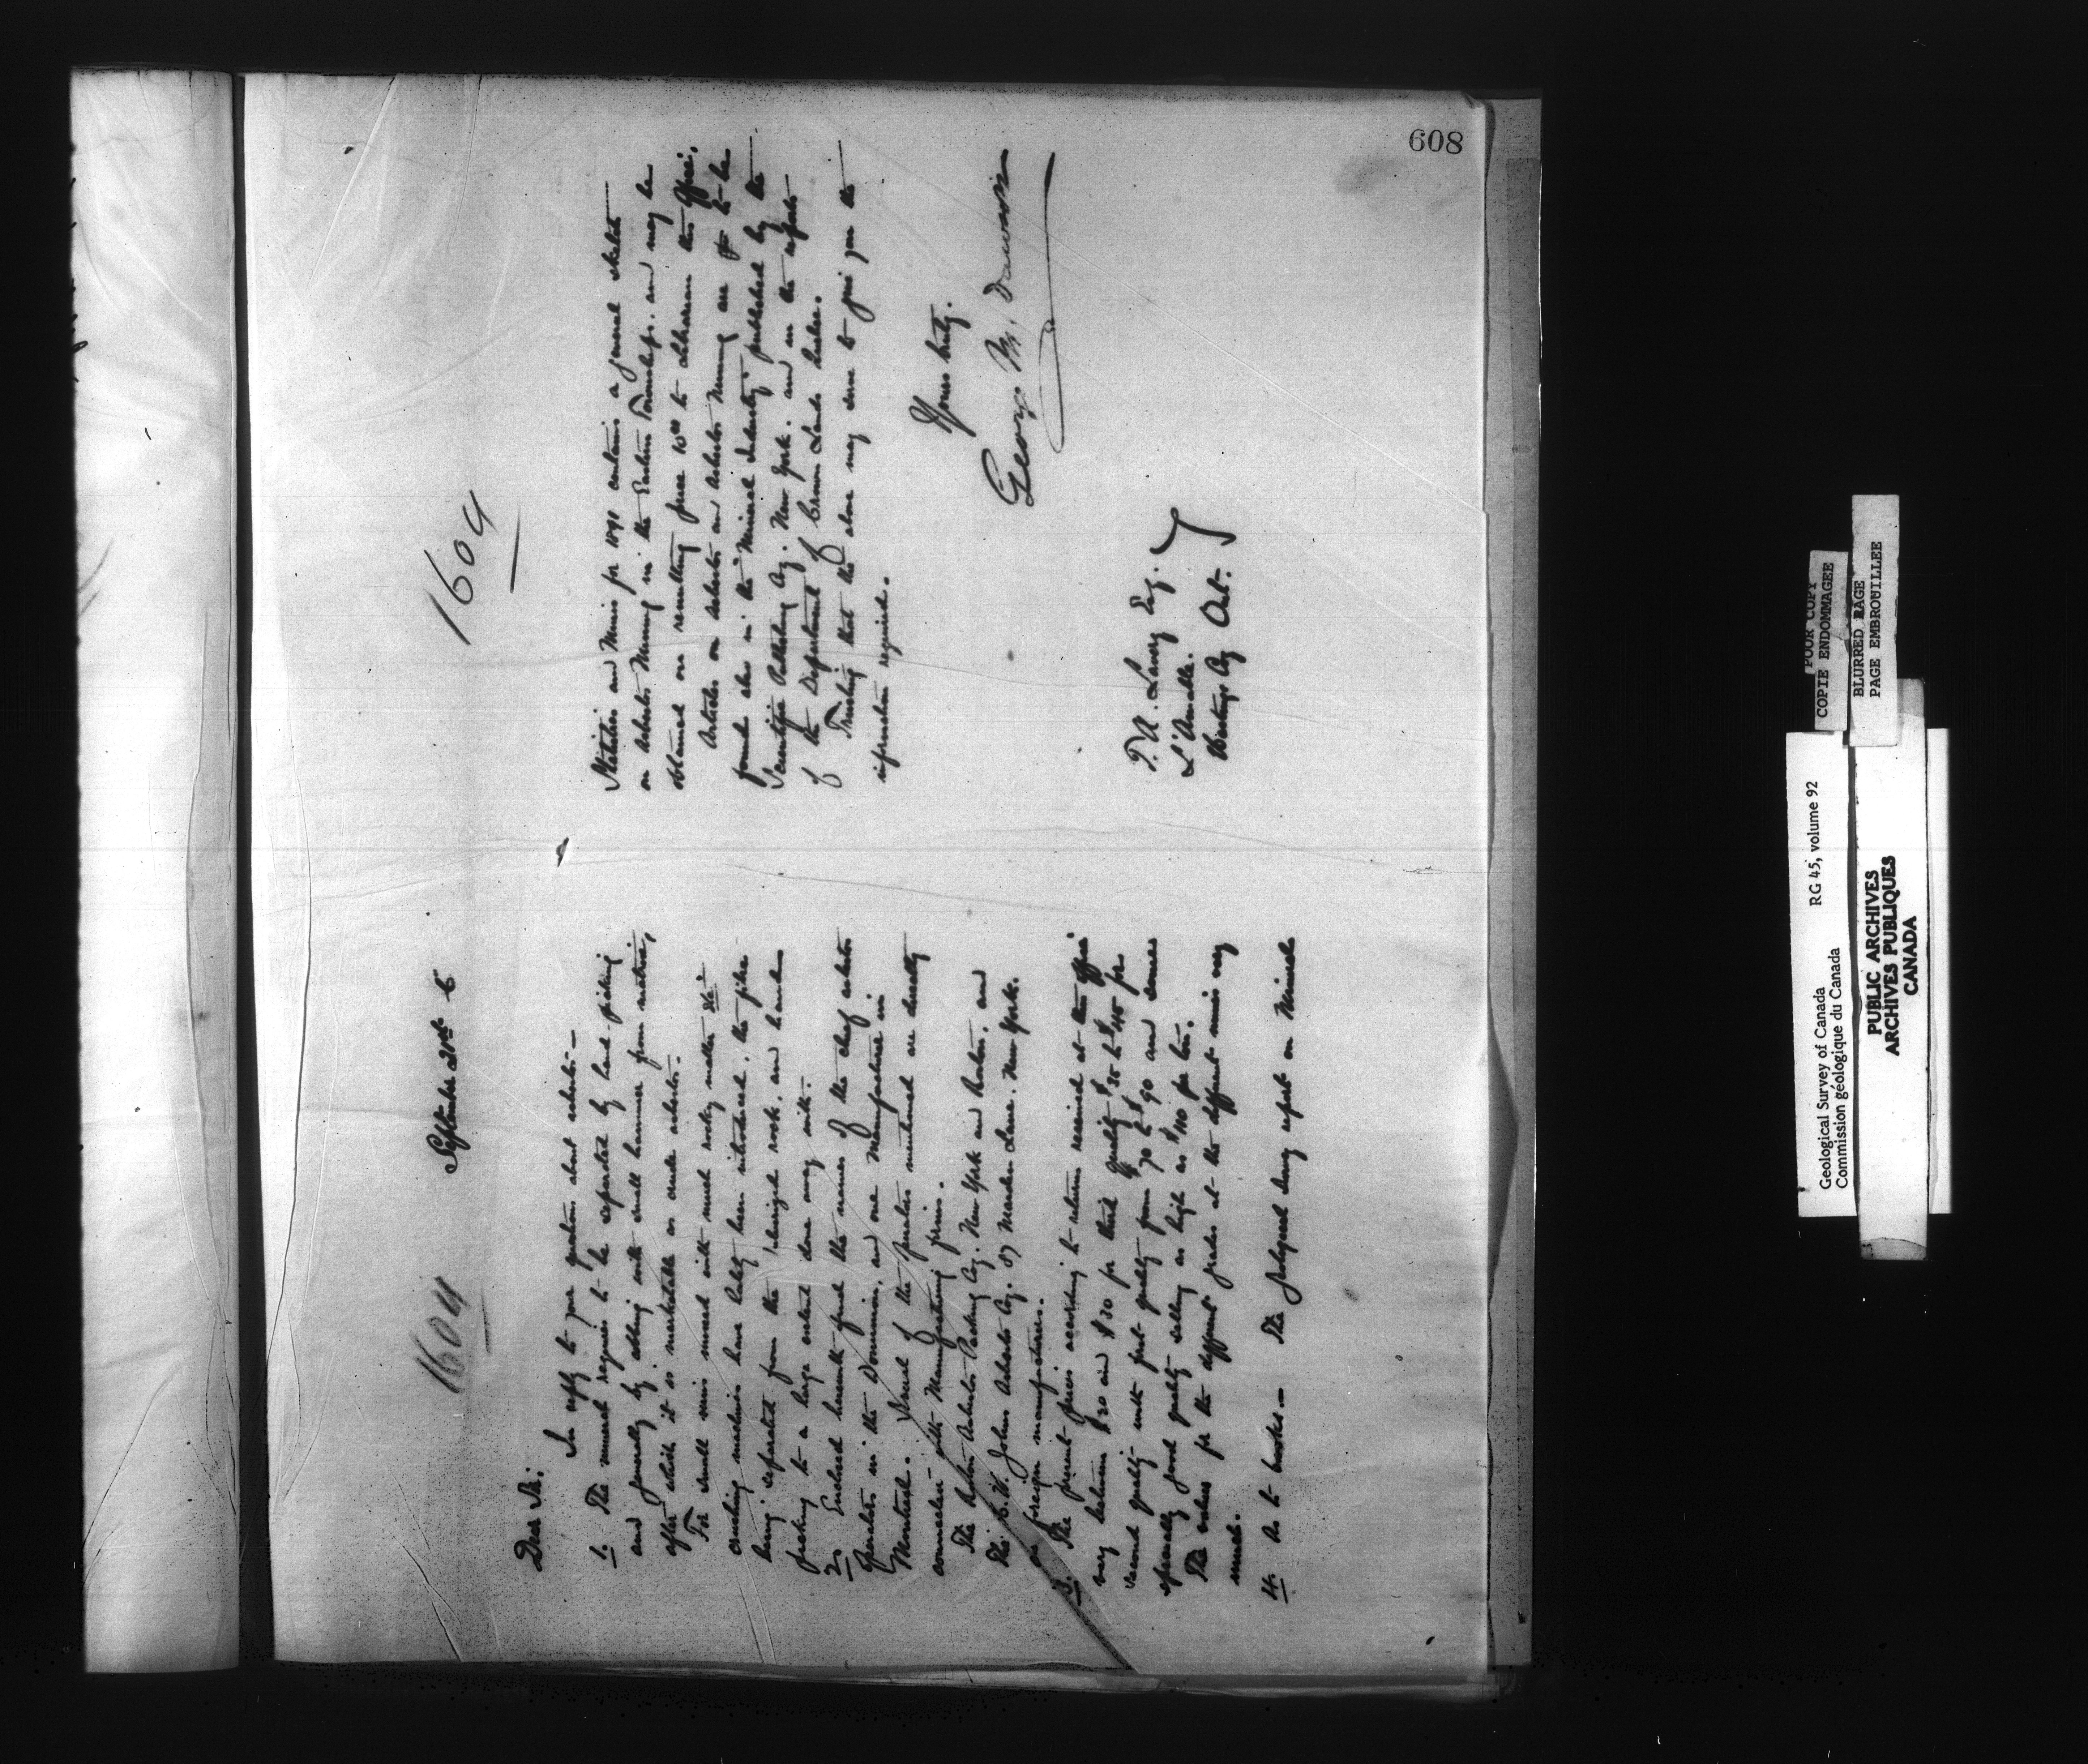 1604
September 21st 6
Dear Sir:
In reply to your question about asbestos. —
1. The mineral requires to be separated by hand-picking
and generally by cobbing with small hammer from matrix,
after which it is marketable as crude asbestos.
For small veins mixed with much rocky matter &c
crushing machines have lately been introduced, the fibre
being separated from the pulverized rock, and hand
picking to a large extent done away with.
2. Enclosed herewith find the names of the chief asbestos
operators in the Dominion, and one Manufacturer in
Montreal. Several of the parties mentioned are directly
connected with Manufacturing firms.
The Asbestos Packing Cy. New York and Boston, and
The H. W. Johns Asbestos Cy. 87 Maiden Lane, New York.
are foreign manufacturers.
3. The present prices according to returns received at this office
vary between $20 and $30 for third quality $35 to $45 for
second quality with first quality from $70 to $90 and some
specially good quality selling as high as $110 per ton.
The values for the different grades at the different mines vary
much.
4. As to books. — The Geological Survey report on Minerals
1604
Statistics and Mines for 1891 contains a general sketch
on Asbestos Mining in the Eastern Townships, and may be
obtained on remitting price 10cts to Librarian this office.
Articles on asbestos and Asbestos Mining are to be
found also in the "Mineral Industry" published by the
Scientific Publishing Cy. New York, and in the reports
of the Department of Crown Lands Quebec.
Trusting that the above may serve to give you the
information required.
Yours truly,
George M. Dawson
L'Amable.
Hastings Cy Ont.
608
POOR COPY
COPIE ENDOMMAGEE
BLURRED PAGE
PAGE EMBROUILLEE
Geological Survey of Canada RG 45, volume 92
Commission géologique du Canada
PUBLIC ARCHIVES
ARCHIVES PUBLIQUES
CANADA